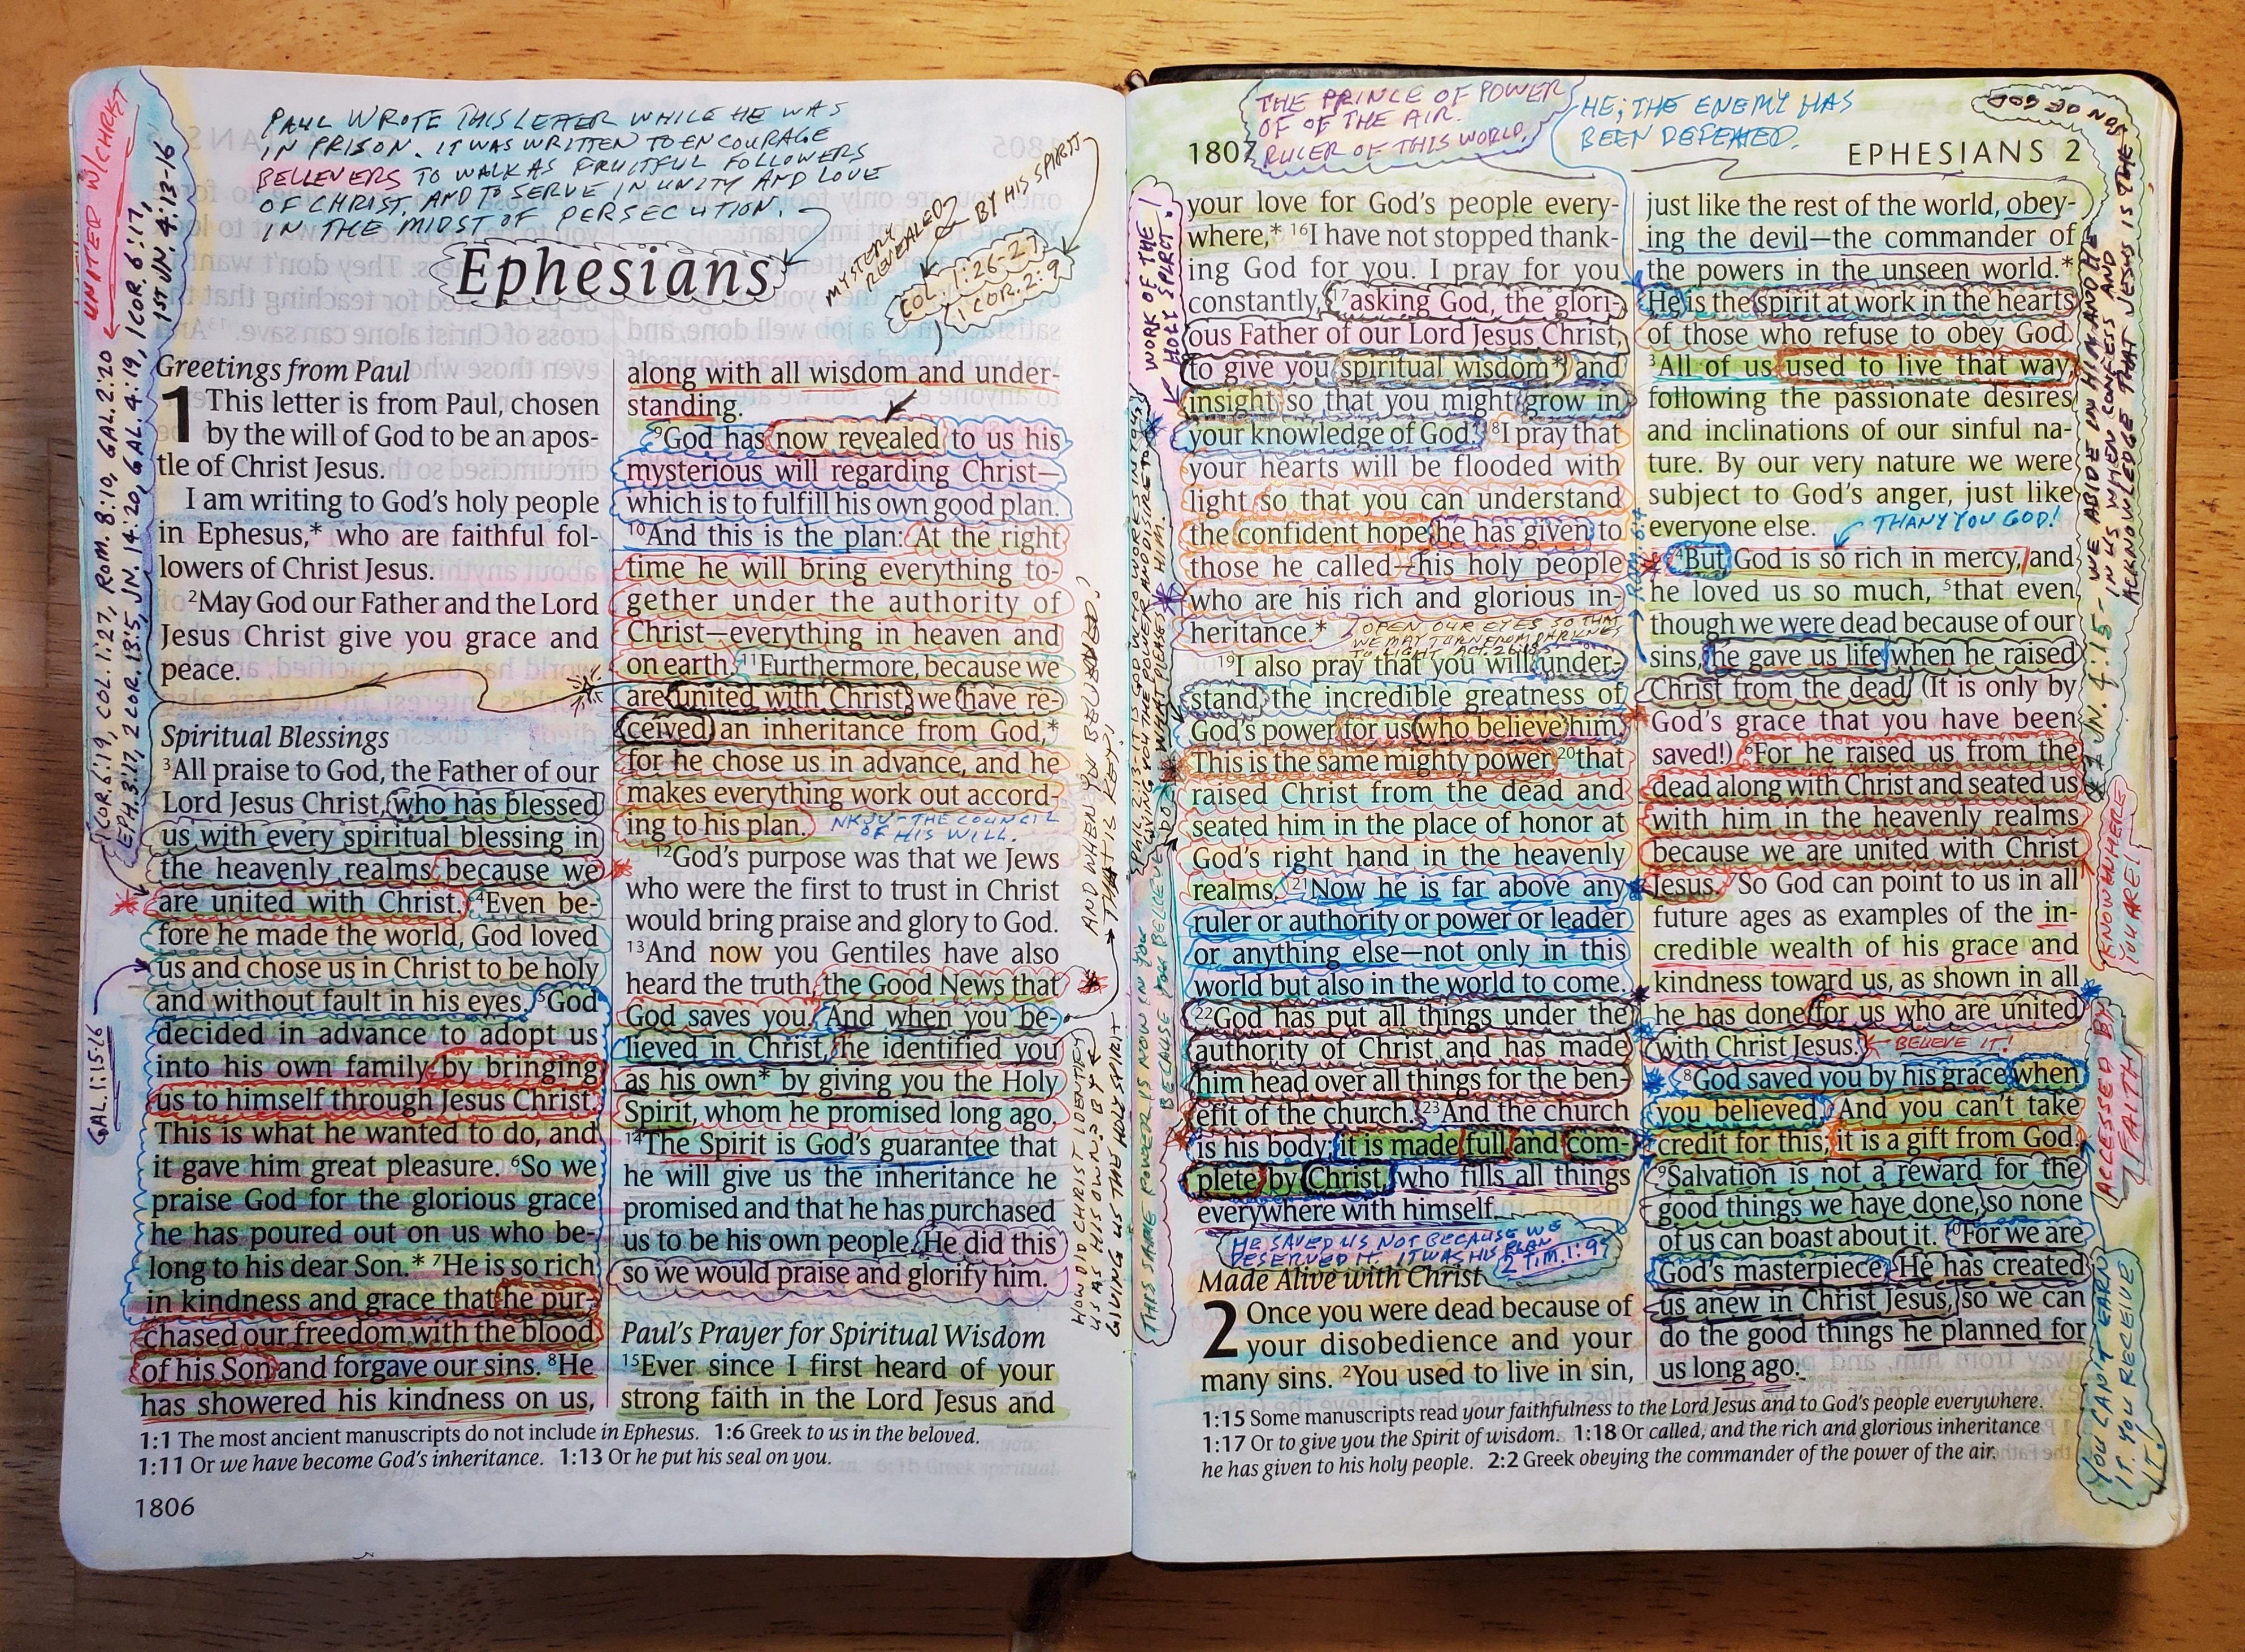 PAUL WROTE THIS LETTER WHILE HE WAS
IN PRISON. IT WAS WRITTEN TO ENCOURAGE
BELIEVERS TO WALK AS FRUITFUL FOLLOWERS
OF CHRIST, AND TO SERVE IN UNITY AND LOVE
IN THE MIDST OF PERSECUTION.
Ephesians
MYSTERY
REVEALED
BY HIS SPIRIT
COL. 1:26-27
1 COR. 2:9
UNITED W/CHRIST
1 COR. 6:19, COL. 1:27, ROM. 8:10, GAL. 2:20
EPH. 3:17, 2 COR. 13:5, JN. 14:20, GAL. 4:19, 1 COR. 6:17,
1ST JN. 4:13-16
GAL. 1:15-16
Greetings from Paul
1 This letter is from Paul, chosen
by the will of God to be an apos-
tle of Christ Jesus.
I am writing to God's holy people
in Ephesus,* who are faithful fol-
lowers of Christ Jesus.
2May God our Father and the Lord
Jesus Christ give you grace and
peace.
Spiritual Blessings
3All praise to God, the Father of our
Lord Jesus Christ, who has blessed
us with every spiritual blessing in
the heavenly realms because we
are united with Christ. 4Even be-
fore he made the world, God loved
us and chose us in Christ to be holy
and without fault in his eyes. 5God
decided in advance to adopt us
into his own family by bringing
us to himself through Jesus Christ.
This is what he wanted to do, and
it gave him great pleasure. 6So we
praise God for the glorious grace
he has poured out on us who be-
long to his dear Son.* 7He is so rich
in kindness and grace that he pur-
chased our freedom with the blood
of his Son and forgave our sins. 8He
has showered his kindness on us,
along with all wisdom and under-
standing.
9God has now revealed to us his
mysterious will regarding Christ—
which is to fulfill his own good plan.
10And this is the plan: At the right
time he will bring everything to-
gether under the authority of
Christ—everything in heaven and
on earth. 11Furthermore, because we
are united with Christ, we have re-
ceived an inheritance from God,*
for he chose us in advance, and he
makes everything work out accord-
ing to his plan.
NKJV - THE COUNCIL
OF HIS WILL.
12God's purpose was that we Jews
who were the first to trust in Christ
would bring praise and glory to God.
13And now you Gentiles have also
heard the truth, the Good News that
God saves you. And when you be-
lieved in Christ, he identified you
as his own* by giving you the Holy
Spirit, whom he promised long ago.
14The Spirit is God's guarantee that
he will give us the inheritance he
promised and that he has purchased
us to be his own people. He did this
so we would praise and glorify him.
Paul's Prayer for Spiritual Wisdom
15Ever since I first heard of your
strong faith in the Lord Jesus and
THAT IS KEY!
HOW DID CHRIST IDENTIFY
US AS HIS OWN? BY
GIVING US THE HOLY SPIRIT
1:1 The most ancient manuscripts do not include in Ephesus. 1:6 Greek to us in the beloved.
1:11 Or we have become God's inheritance. 1:13 Or he put his seal on you.
1806
THE PRINCE OF POWER
OF OF THE AIR.
RULER OF THIS WORLD.
HE; THE ENEMY HAS
BEEN DEFEATED.
1807
EPHESIANS 2
WORK OF THE
HOLY SPIRIT!
THIS SAME POWER IS NOW IN YOU
BECAUSE YOU BELIEVE
your love for God's people every-
where,* 16I have not stopped thank-
ing God for you. I pray for you
constantly, 17asking God, the glori-
ous Father of our Lord Jesus Christ,
to give you spiritual wisdom* and
insight so that you might grow in
your knowledge of God. 8I pray that
your hearts will be flooded with
light so that you can understand
the confident hope he has given to
those he called—his holy people
who are his rich and glorious in-
heritance.*
OPEN OUR EYES SO THAT
WE MAY TURN FROM DARKNESS
TO LIGHT ACT. 26:18
19I also pray that you will under-
stand the incredible greatness of
God's power for us who believe him.
This is the same mighty power 20that
raised Christ from the dead and
seated him in the place of honor at
God's right hand in the heavenly
realms. 21Now he is far above any
ruler or authority or power or leader
or anything else—not only in this
world but also in the world to come.
22God has put all things under the
authority of Christ and has made
him head over all things for the ben-
efit of the church. 23And the church
is his body; it is made full and com-
plete by Christ, who fills all things
everywhere with himself.
HE SAVED US NOT BECAUSE WE
DESERVED IT. IT WAS HIS PLAN
2 TIM. 1:9
Made Alive with Christ
2 Once you were dead because of
your disobedience and your
many sins. 2You used to live in sin,
just like the rest of the world, obey-
ing the devil—the commander of
the powers in the unseen world.*
He is the spirit at work in the hearts
of those who refuse to obey God.
3All of us used to live that way,
following the passionate desires
and inclinations of our sinful na-
ture. By our very nature we were
subject to God's anger, just like
everyone else.
THANY YOU GOD!
4But God is so rich in mercy, and
he loved us so much, 5that even
though we were dead because of our
sins, he gave us life when he raised
Christ from the dead. (It is only by
God's grace that you have been
saved!) 6For he raised us from the
dead along with Christ and seated us
with him in the heavenly realms
because we are united with Christ
Jesus. 7So God can point to us in all
future ages as examples of the in-
credible wealth of his grace and
kindness toward us, as shown in all
he has done for us who are united
with Christ Jesus.
BELIEVE IT!
8God saved you by his grace when
you believed. And you can't take
credit for this; it is a gift from God.
9Salvation is not a reward for the
good things we have done, so none
of us can boast about it. 10For we are
God's masterpiece. He has created
us anew in Christ Jesus, so we can
do the good things he planned for
us long ago.
1 JN. 4:15 - WE ABIDE IN HIM AND HE
IN US WHEN CONFESS AND
ACKNOWLEDGE THAT JESUS IS THE
SON OF GOD
KNOW WHERE
YOU ARE!
ACCESSED BY
FAITH
YOU CAN'T EARN
IT. YOU RECEIVE
IT!
1:15 Some manuscripts read your faithfulness to the Lord Jesus and to God's people everywhere.
1:17 Or to give you the Spirit of wisdom. 1:18 Or called, and the rich and glorious inheritance
he has given to his holy people. 2:2 Greek obeying the commander of the power of the air.